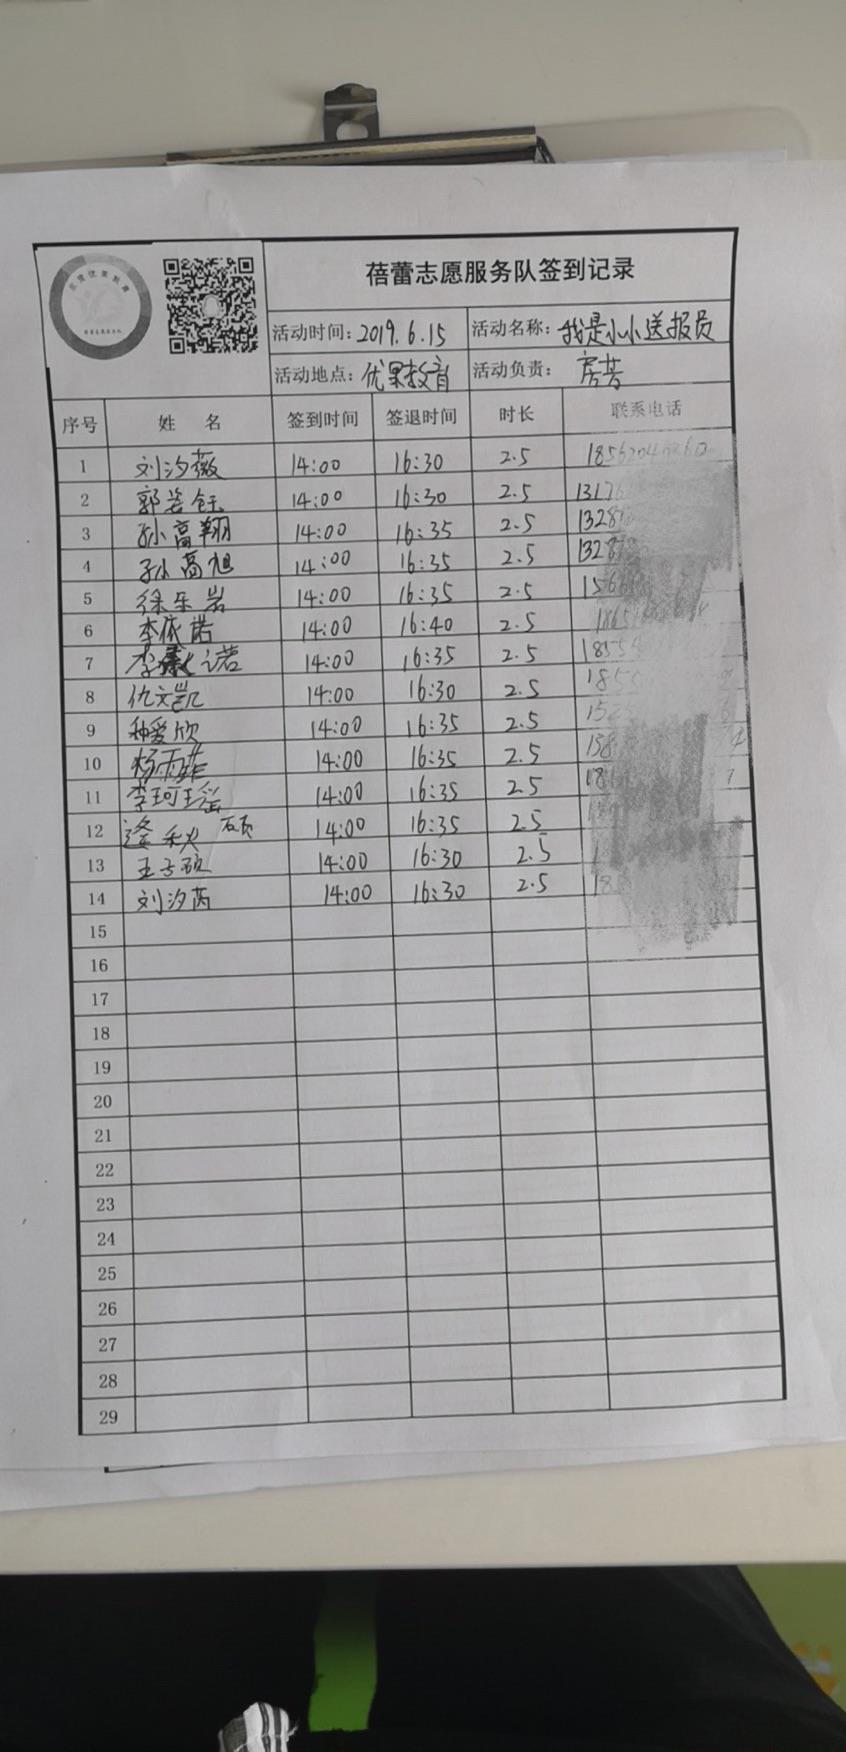 蓓蕾志愿服务队签到记录
活动时间: 2019.6.15 活动名称: 我是小小送报员
活动地点: 优果教育 活动负责:
序号 姓 名 签到时间 签退时间 时长 联系电话
1 刘汐薇 14:00 16:30 2.5
2 郭若钰 14:00 16:30 2.5
3 孙高翔 14:00 16:35 2.5
4 孙高旭 14:00 16:35 2.5
5 徐乐岩 14:00 16:35 2.5
6 李依诺 14:00 16:40 2.5
7 李 诺 14:00 16:35 2.5
8 仇文凯 14:00 16:30 2.5
9 种爱欣 14:00 16:35 2.5
10 杨雨菲 14:00 16:35 2.5
11 李珂瑶 14:00 16:35 2.5
12 逄秋硕 14:00 16:35 2.5
13 王子硕 14:00 16:30 2.5
14 刘汐芮 14:00 16:30 2.5
15
16
17
18
19
20
21
22
23
24
25
26
27
28
29